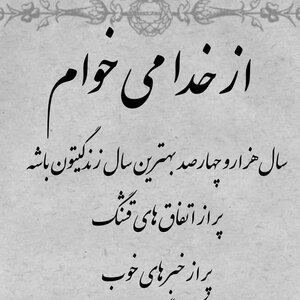 از خدا می خوام
سال هزار و چهارصد بهترین سال زندگیتون باشه
پر از اتفاق های قشنگ
پر از خبرهای خوب